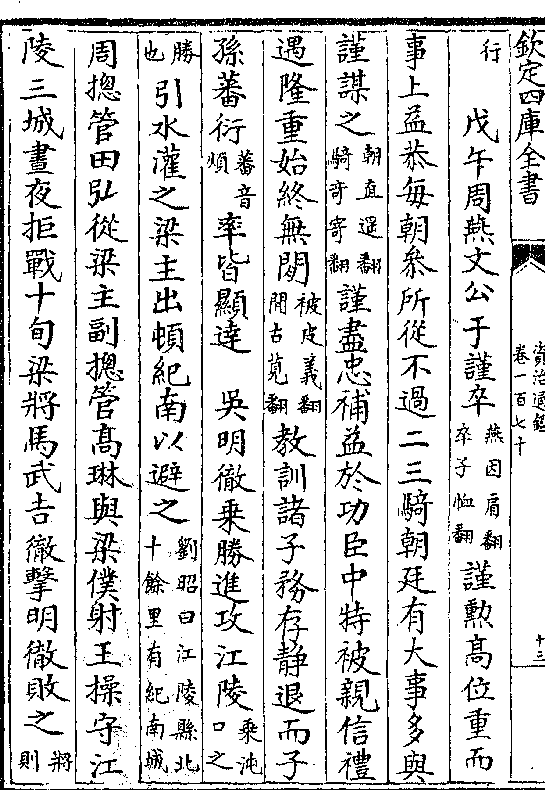 欽定四庫全書
資治通鑑
卷一百七十
十三
行
戊午周燕文公于謹卒燕因肩翻卒子恤翻謹勲髙位重而
事上益恭每朝參所從不過二三騎朝廷有大事多與
謹謀之朝直遥翻騎竒寄翻謹盡忠補益於功臣中特被親信禮
遇隆重始終無間被皮義翻間古莧翻教訓諸子務存静退而子
孫蕃衍蕃音煩率皆顯達　吳明徹乗勝進攻江陵乗沌口之
勝也引水灌之梁主出頓紀南以避之劉昭曰江陵縣北十餘里有紀南城
周摠管田弘從梁主副摠管髙琳與梁僕射王操守江
陵三城晝夜拒戰十旬梁將馬武吉徹擊明徹敗之將則